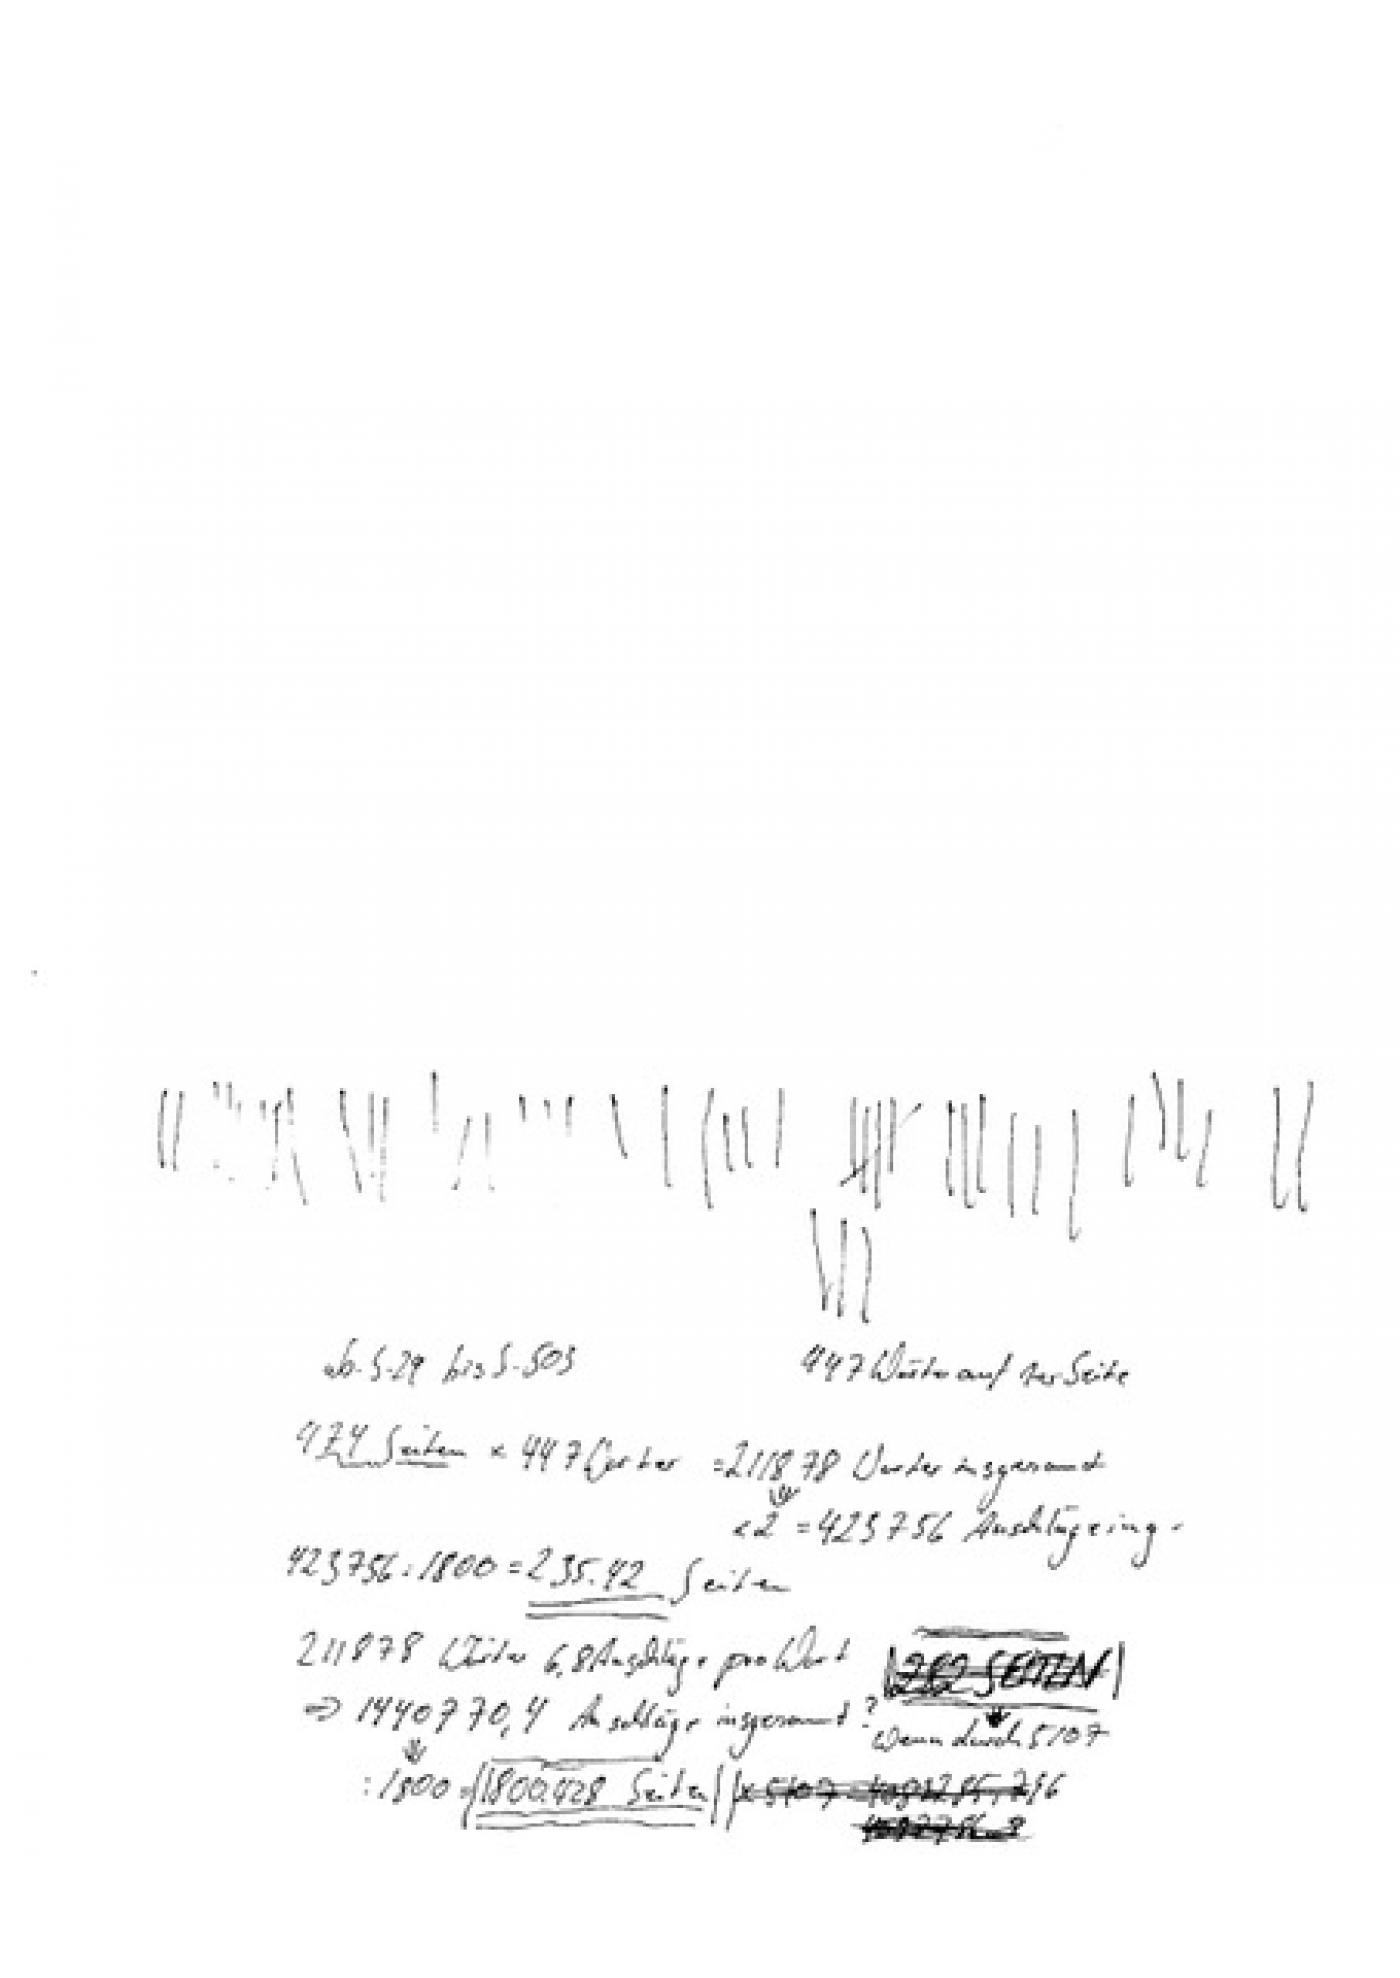 ab S. 29 bis S. 503
447 Wörter auf 1er Seite
474 Seiten x 447 Wörter = 211878 Wörter insgesamt
x 2 = 423756 Anschläge insg.
423756 : 1800 = 235.42 Seiten
211878 Wörter 6,8 Anschläge pro Wort
262 SEITEN
=> 1440770,4 Anschläge insgesamt ?
wenn durch 5107
: 1800 = 800.428 Seiten x 5107